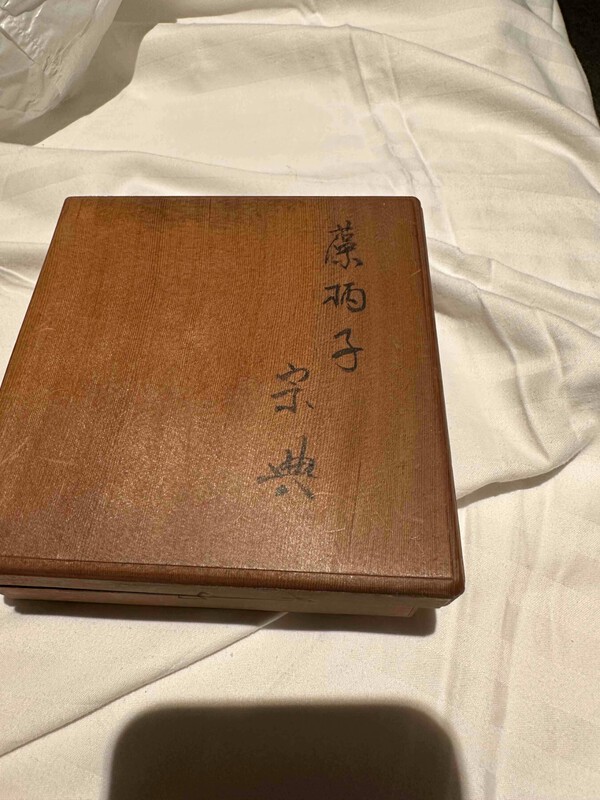 藻柄子
宗典